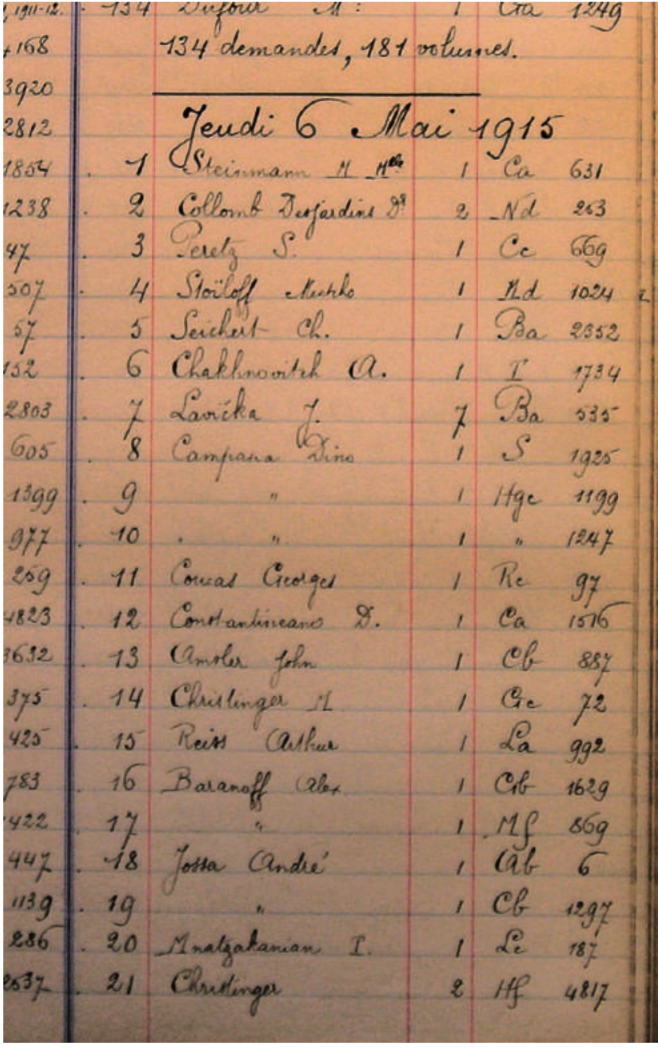 1911-12. 134 Dufour M. 1 Ga 1249
168 134 demandes, 181 volumes.
3920
2812 Jeudi 6 Mai 1915
1854 . 1 Steinmann M Mlle 1 Ca 631
1238 . 2 Collomb Desjardins Dr 2 Nd 263
47 . 3 Peretz S. 1 Cc 669
507 . 4 Stoïloff 1 Md 1024
57 . 5 Seichert Ch. 1 Ba 2352
152 . 6 Chakhnovitch A. 1 I 1734
2803 . 7 Lavička J. 7 Ba 535
605 . 8 Campana Dino 1 S 1925
1399 . 9 " 1 Hgc 1199
977 . 10 " 1 " 1247
259 . 11 Coucas Georges 1 Rc 97
4823 . 12 Constantineanu D. 1 Ca 1516
3632 . 13 Amsler John 1 Cb 887
375 . 14 Christinger M 1 Gc 72
425 . 15 Reiss Arthur 1 La 992
783 . 16 Baranoff Alex. 1 Gb 1629
422 . 17 " 1 Mf 869
447 . 18 Jossa André 1 Ab 6
1139 . 19 " 1 Cb 1297
286 . 20 Mnatzakanian I. 1 Lc 187
2637 . 21 Christinger 2 Hf 4817